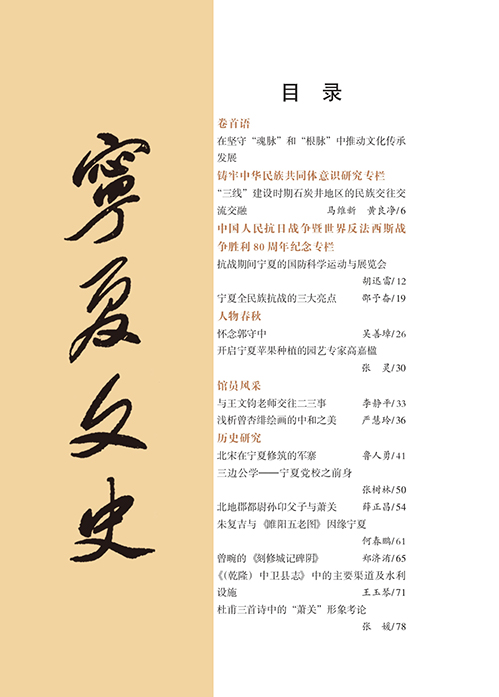 寧夏文史
目 录
卷首语
在坚守“魂脉”和“根脉”中推动文化传承
发展
铸牢中华民族共同体意识研究专栏
“三线”建设时期石炭井地区的民族交往交
流交融 马维新 黄良净/6
中国人民抗日战争暨世界反法西斯战
争胜利80周年纪念专栏
抗战期间宁夏的国防科学运动与展览会
胡迅雷/12
宁夏全民族抗战的三大亮点 邵予奋/19
人物春秋
怀念郭守中 吴善璋/26
开启宁夏苹果种植的园艺专家高嘉楹
张 灵/30
馆员风采
与王文钧老师交往二三事 李静平/33
浅析曾杏绯绘画的中和之美 严慧玲/36
历史研究
北宋在宁夏修筑的军寨 鲁人勇/41
三边公学——宁夏党校之前身
张树林/50
北地郡都尉孙卬父子与萧关 薛正昌/54
朱复吉与《睢阳五老图》因缘宁夏
何春鹏/61
曾畹的《刻修城记碑阴》 郑济洧/65
《(乾隆）中卫县志》中的主要渠道及水利
设施 王玉琴/71
杜甫三首诗中的“萧关”形象考论
张 媛/78